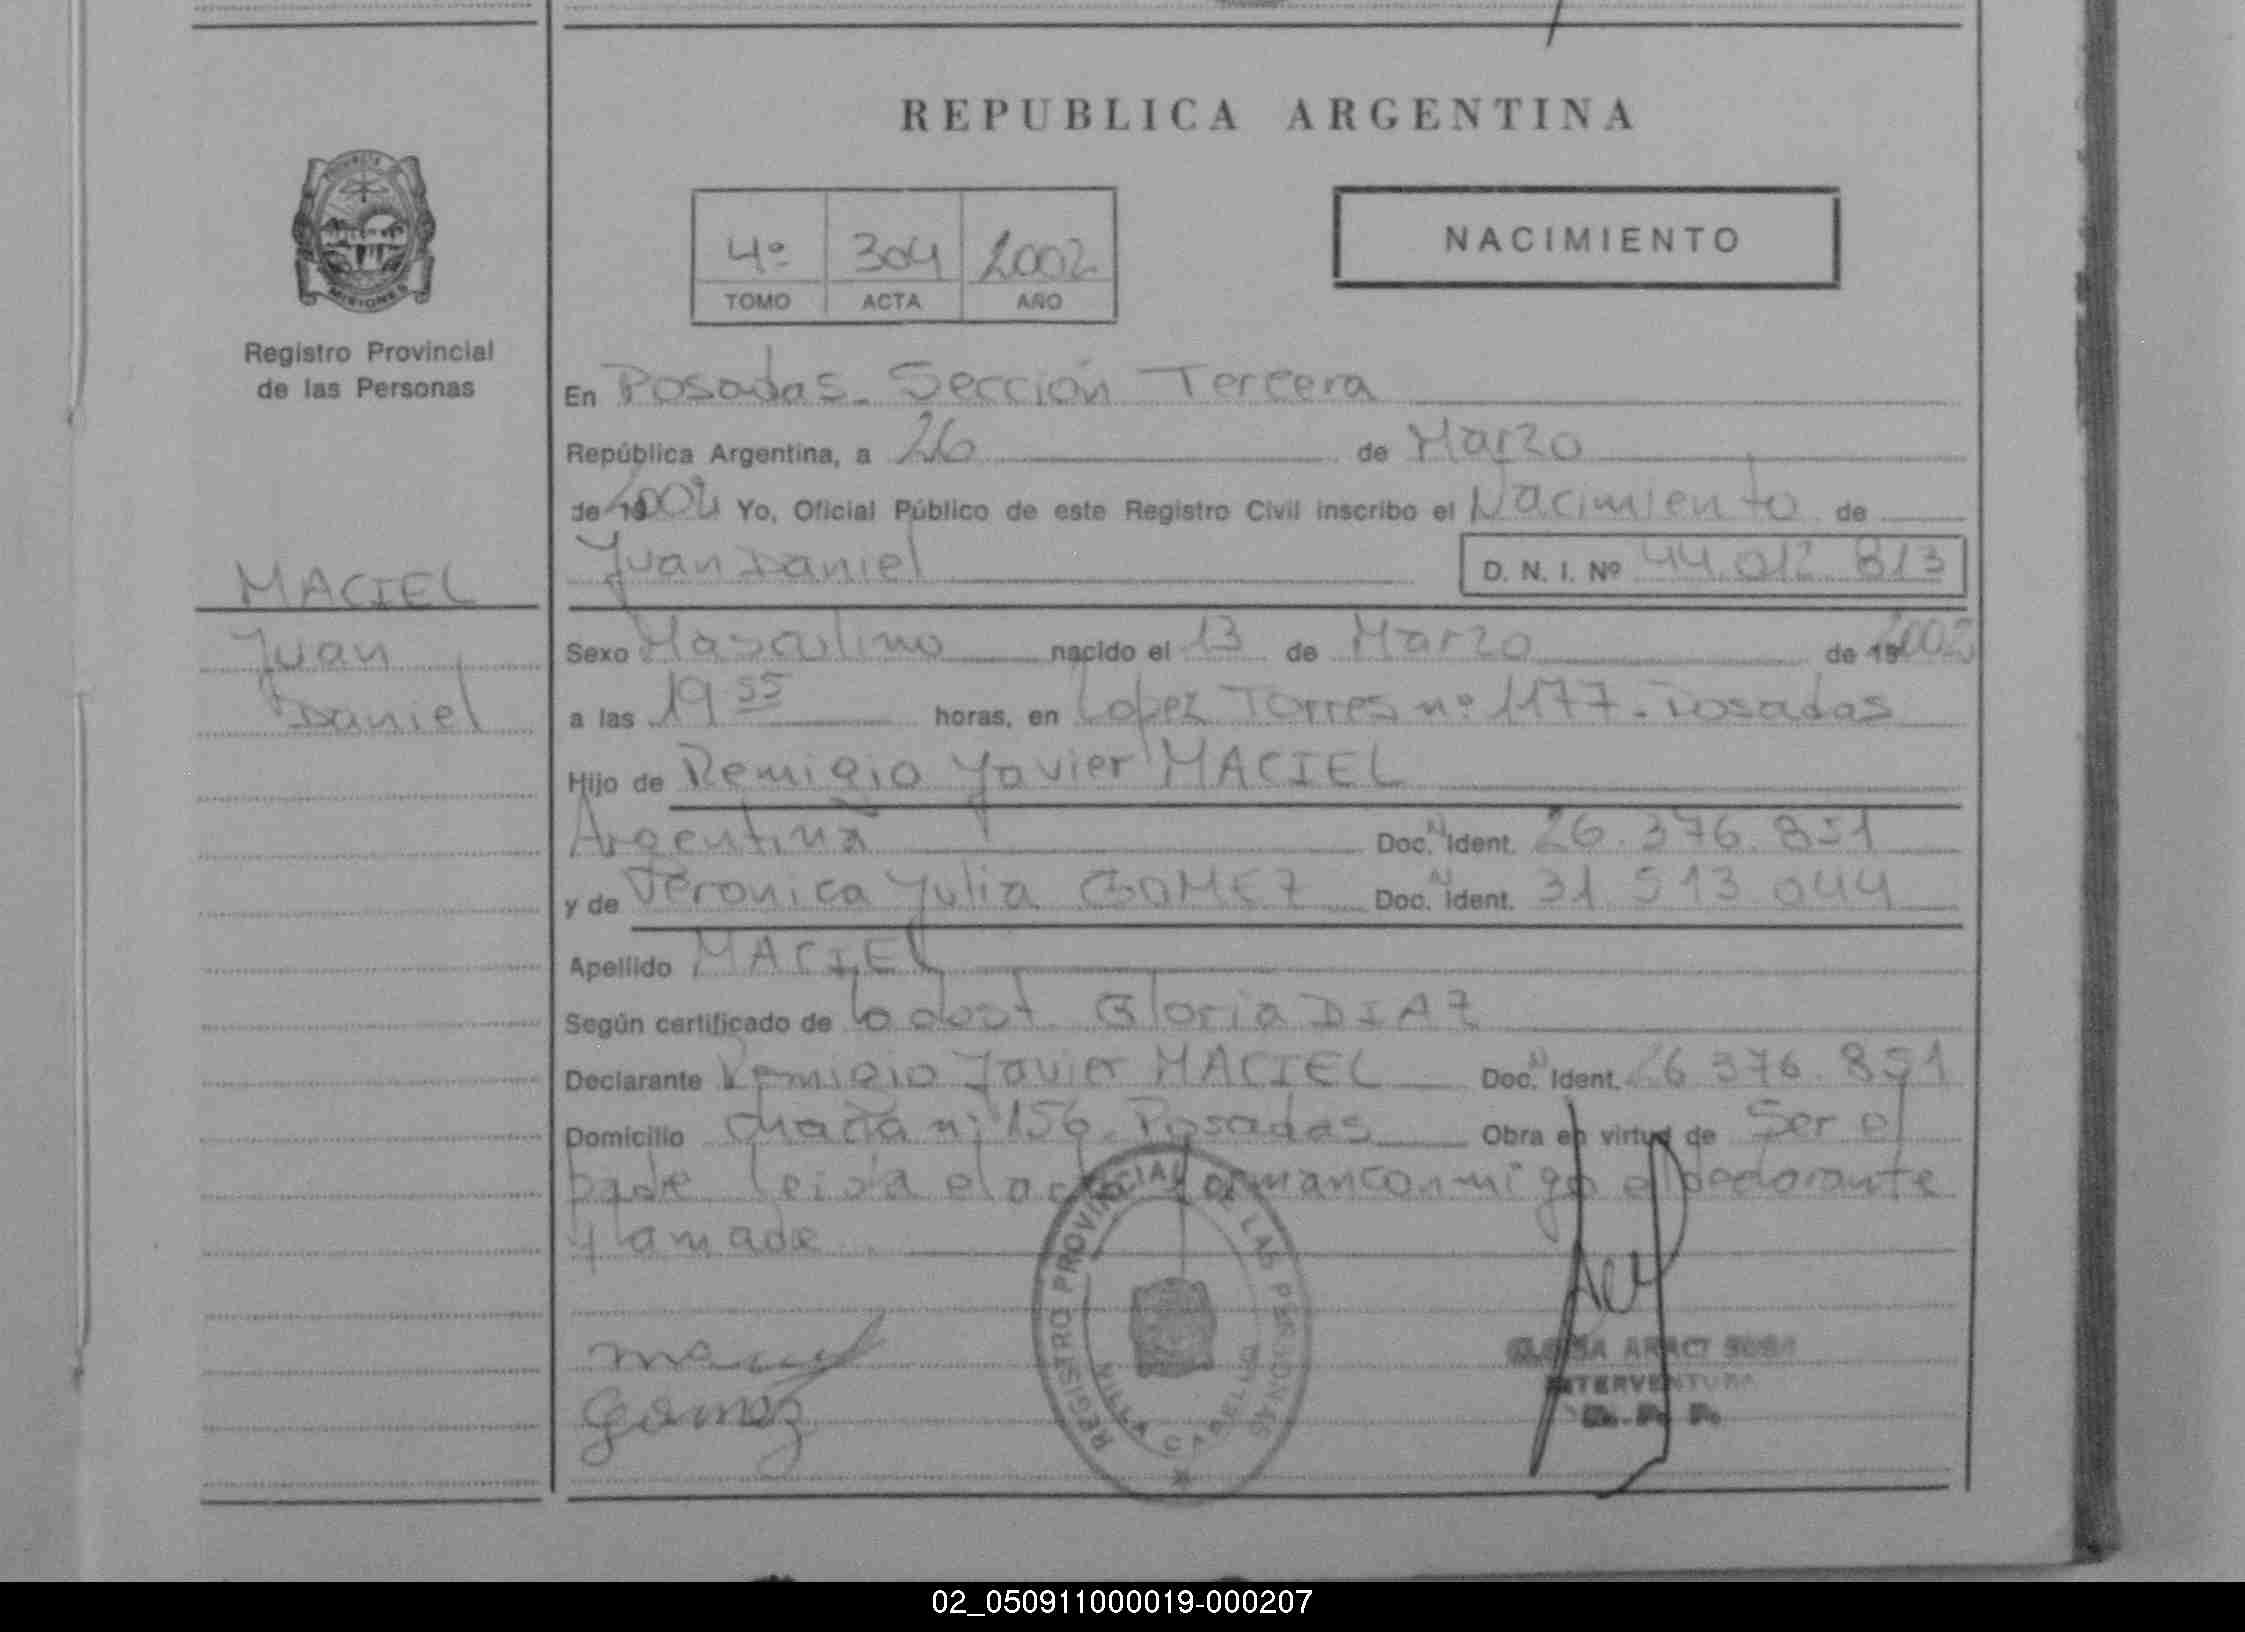 REPUBLICA ARGENTINA
MISIONES
Registro Provincial
de las Personas
4º 304 2002
TOMO ACTA AÑO
NACIMIENTO
En Posadas. Sección Tercera
República Argentina, a 26 de Marzo
de 19 2002 Yo, Oficial Público de este Registro Civil inscribo el Nacimiento de
Juan Daniel D. N. I. Nº 44.012.813
MACIEL
Juan
Daniel
Sexo Masculino nacido el 13 de Marzo de 19 2002
a las 19 55 horas, en Lopez Torres nº 1177. Posadas
Hijo de Remigio Javier MACIEL
Argentina Doc. N Ident. 26.376.851
y de Veronica Julia GOMEZ Doc. N Ident. 31.513.044
Apellido MACIEL
Según certificado de la obst. Gloria DIAZ
Declarante Remigio Javier MACIEL Doc. N Ident. 26.376.851
Domicilio nº 156. Posadas Obra en virtud de Ser el
padre leida el acta firman conmigo el declarante
y la madre
REGISTRO PROVINCIAL DE LAS PERSONAS
VILLA CABELLO
Gomez
ARACI SOSA
INTERVENTORA
R. P. P.
02_050911000019-000207